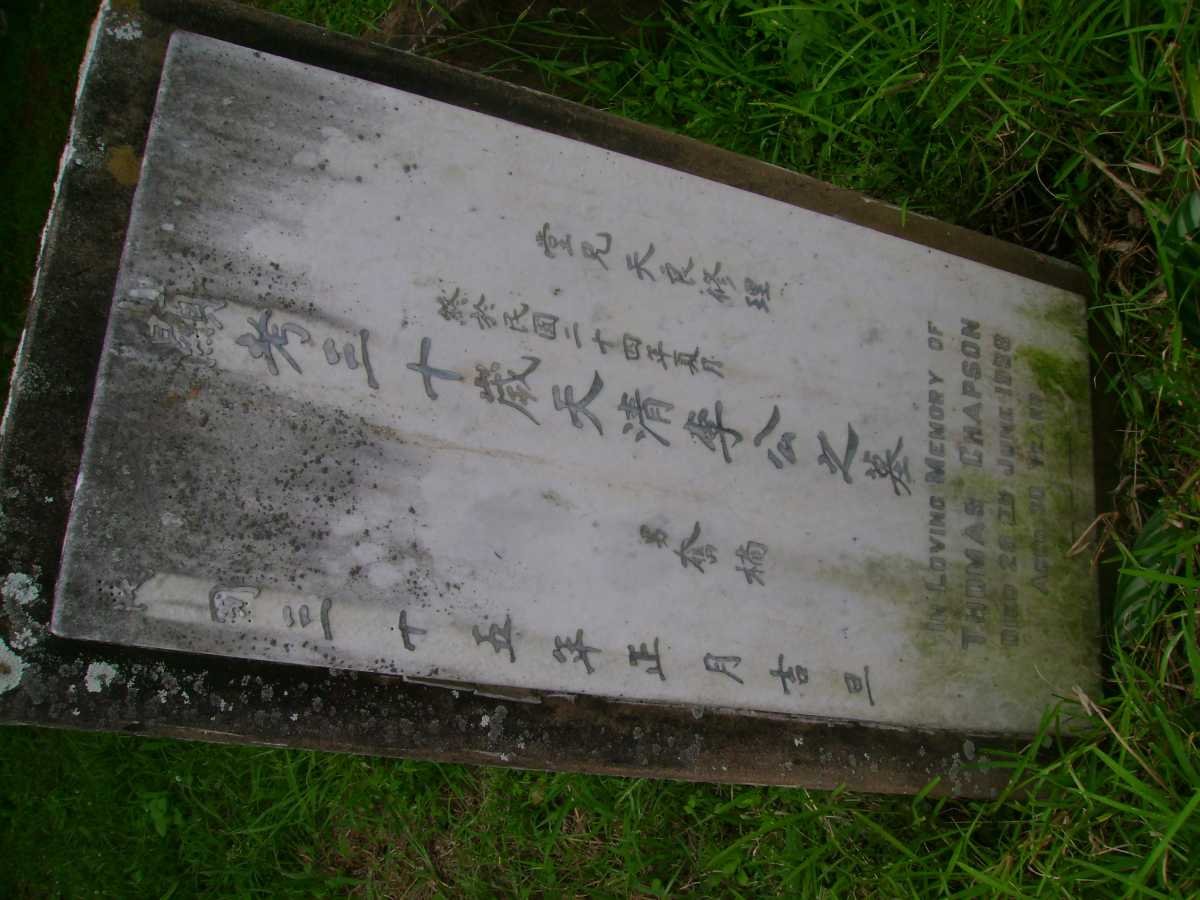 堂兄天良修理
終於民國二十四年五月
顯考三十歲天清李公之墓
男 楠
民國三十五年正月吉旦
IN LOVING MEMORY OF
THOMAS CHAPSON
DIED 28TH JUNE 1935
AGED 30 YEARS